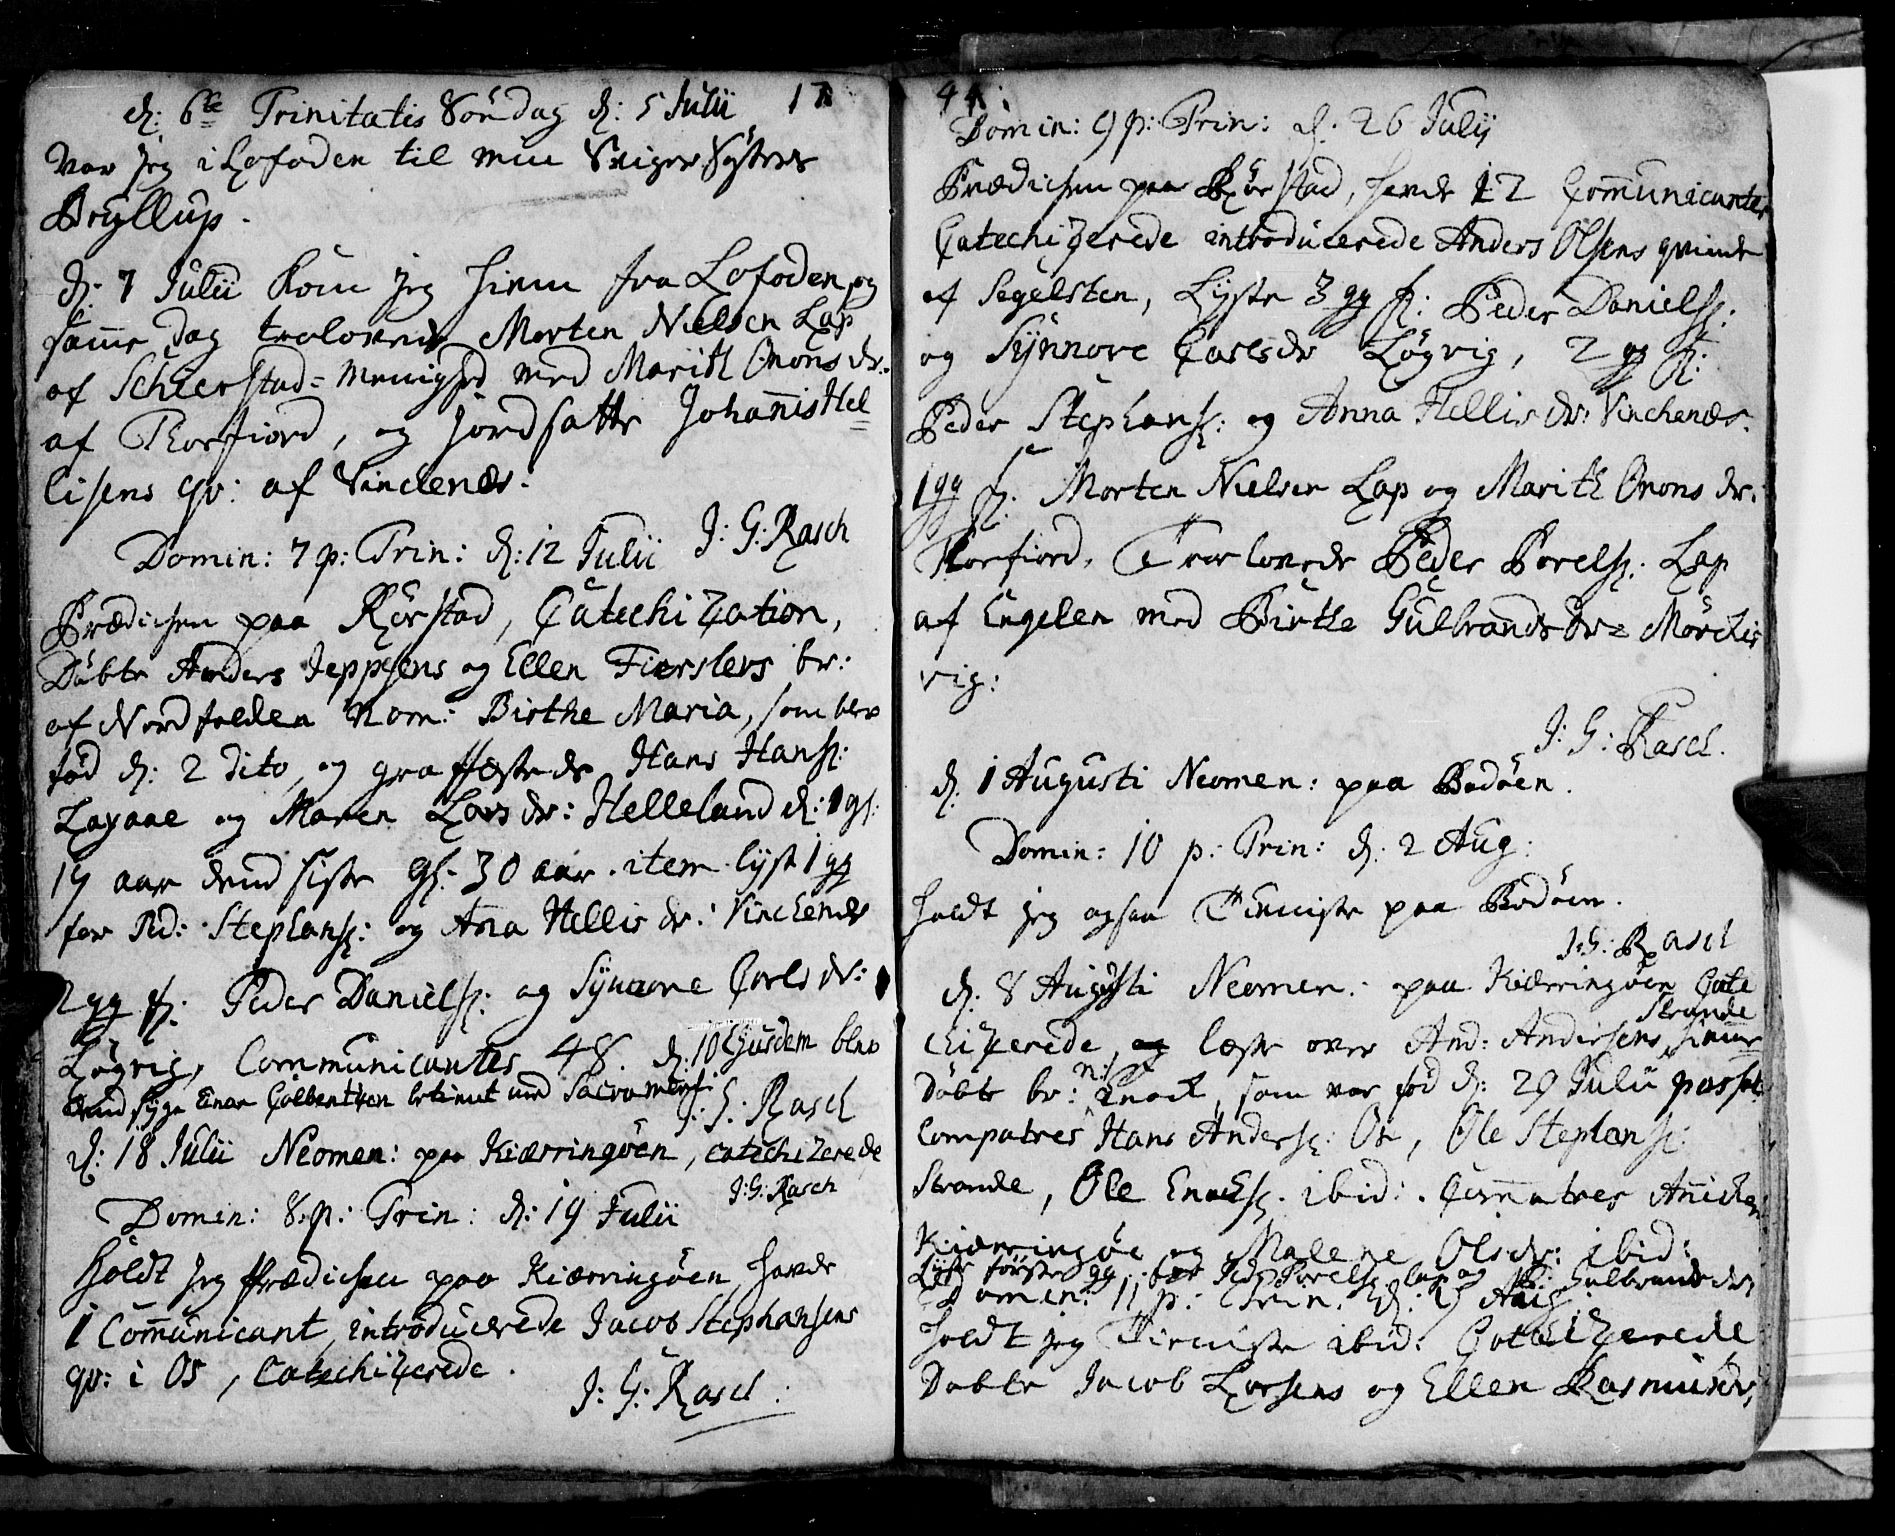 d: 6te Trinitatis Söndag d: 5 Julii 17
var jeg i Lofoden til min Sviger Systers
Bryllup.
d: 7 Julii kom jeg hiem fra Lofoden, og
samme dag trolovede Morten Nielsen Lap
af Scheerstad-Menighed med Marith Omons dr:
af Thorfiord, og jordsatte Johannis Hel
lisens qv: af Vinckenæs.
J: G: Rasch
Domin: 7 p: Trin: d: 12 Julii
Prædichen paa Rørstad, Catechization,
Döbte Anders Jeppsens og Ellen br:
af Nordfolden Nom: Birthe Maria, som blev
fød d: 2 dito, og Hans Hanss:
og Maren Lars dr: Helleland d: 1 gl:
19 aar dend siste gl: 30 aar. item lyst 1 gg
for Pd: Stephans: og Ana Hellis dr: Vinckenæs
2 gg f: Peder Daniels: og Synnove Carls dr:
Løgvig, Communicantes 48. d: 10 Ejusdem blev
dend syge Einar betient med Sacrament:
J: G: Rasch
d: 18 Julii Neomen: paa Kiærringøen, catechizerede
J: G: Rasch
Domin: 8. p: Trin: d: 19 Julii
Holdt jeg Prædichen paa Kiærringøen, havde
1 Communicant, introducerede Jacob Stephansens
qv: i Os, Catechizerede.
J: G: Rasch.
44:
Domin: 9 p: Trin: d. 26 Julij
Prædichen paa Rørstad, havde 12 Communicanter
Catechizerede introducerede Anders Olsens qvinde
af Segelsten, Lyste 3 gg f: Peder Daniels:
og Synnove Carlsdr Løgvig, 2 gg f:
Peder Stephans: og Anna Hellis dr: Vinckenæs.
1 gg f: Morten Nielsen Lap og Marith Omons dr:
Thorfiord. Trolovede Peder Povels: Lap
af Engelen med Birthe Gulbrands dr= Mörchis
vig:
J: G: Rasch.
d. 1 Augusti Neomen: paa Bodøen.
Domin: 10 p: Trin: d: 2 Aug:
holdt jeg ogsaa Tieniste paa Bodøen.
J: G: Rasch
d: 8 Augusti Neomen: paa Kiærringøen Cate
chizerede, læste over And: Andersens Strande hiemme
Döbte br: n: Enoch, som var fød d: 29 Julii passat
Compatres Hans Anders: Os, Ole Stephans:
Strande, Ole Enochs: ibid: . Commatres Anichen
Kiærringøe og Malene Olsdr: ibid:
Lyste første gg for Ped: Povels: lap og B: Gulbrands dr
Domin: 11 p: Trin: d: 9 Aug:
holdt jeg Tieniste ibid: Catechizerede
Döbte Jacob Larsens og Ellen Rasmusdr